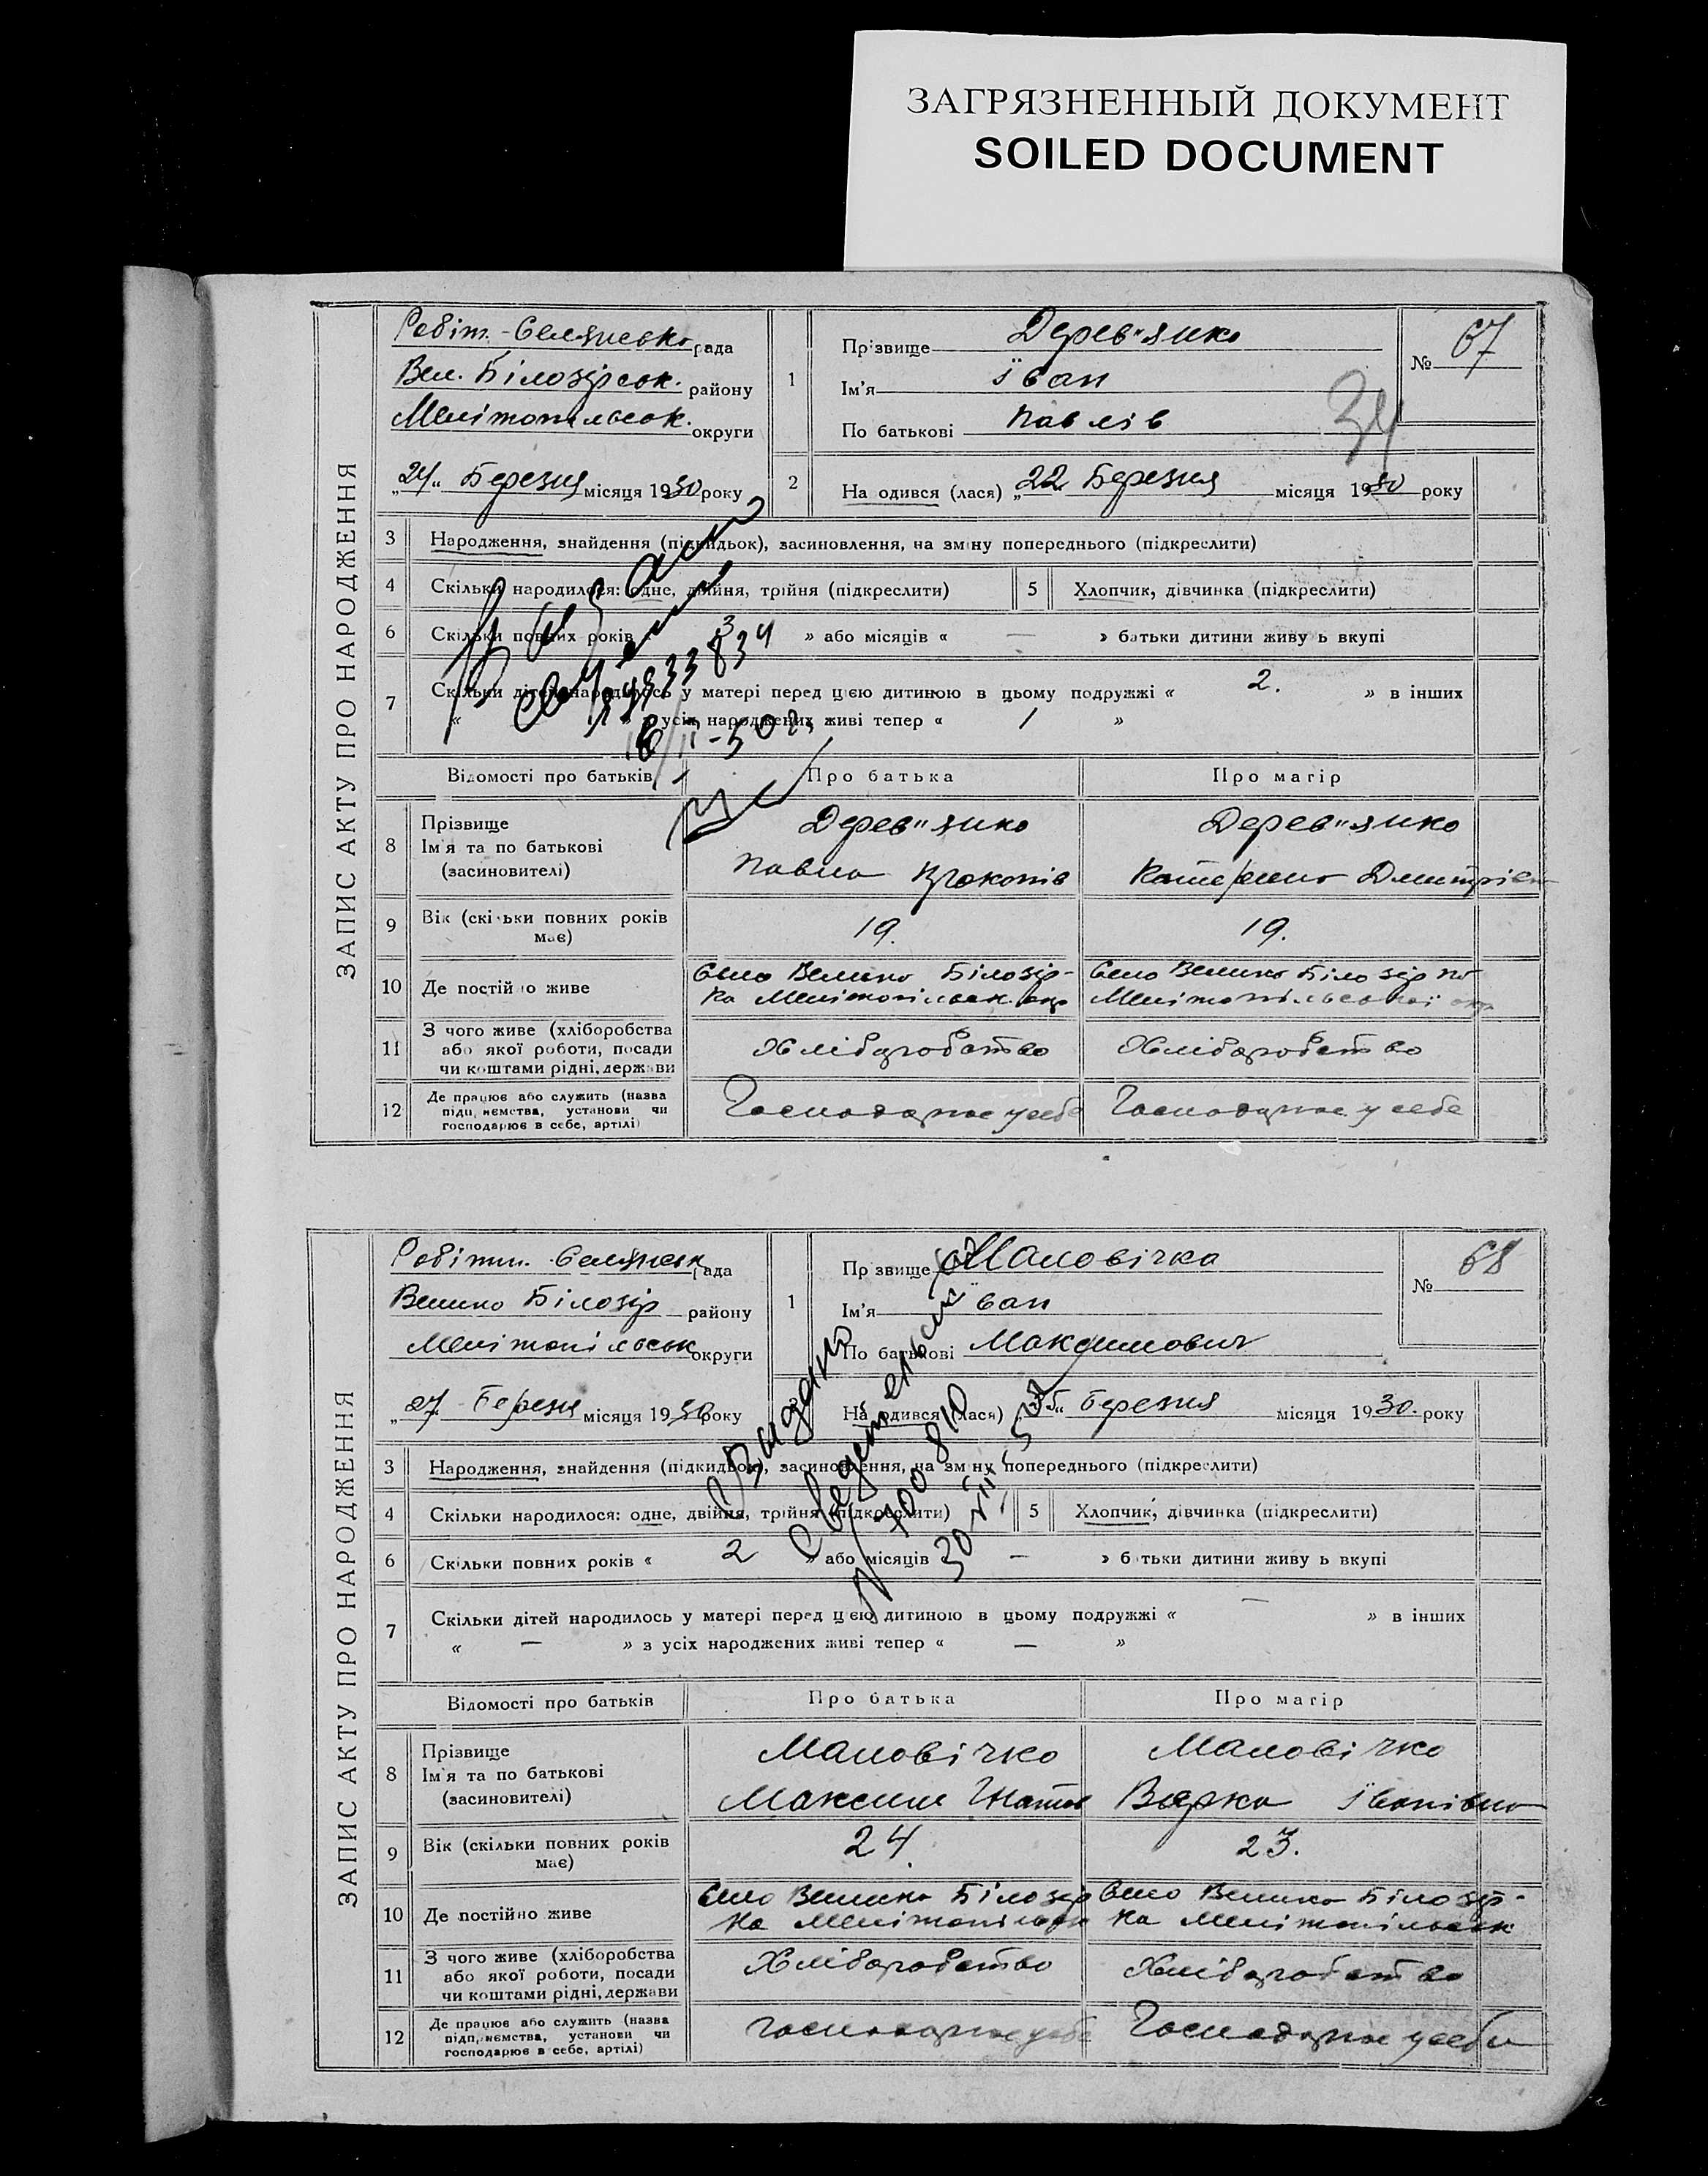 ЗАГРЯЗНЕННЫЙ ДОКУМЕНТ
SOILED DOCUMENT
ЗАПИС АКТУ ПРО НАРОДЖЕННЯ
Робіт.-Селянсько рада
Вел. Білозірськ. району
Мелітопільськ. округи
„24“ Березня місяця 1930 року
1
Прізвище Дерев"янко
Ім'я Їван
По батькові Павлів
№ 67
34
2
На одився (лася) „22 Березня місяця 1930 року
3 Народження, знайдення (підкидьок), засиновлення, на зміну попереднього (підкреслити)
4 Скільки народилося: одне, двійня, трійня (підкреслити) 5 Хлопчик, дівчинка (підкреслити)
6 Скільки повних років « 3 » або місяців « — » батьки дитини живу ь вкупі
7 Скільки дітей народилось у матері перед цією дитиною в цьому подружжі « 2. » в інших
« » з усіх народжених живі тепер « 1 »
Відомості про батьків Про батька Про матір
8 Прізвище
Ім'я та по батькові
(засиновителі)
Дерев"янко
Павло Прокопів
Дерев"янко
Катерина Дмитрівн
9 Вік (скільки повних років має) 19. 19.
10 Де постійно живе
Село Велико Білозір-
ка Мелітопільськ. окр
Село Велико Білозірка
Мелітопільської окр.
11 З чого живе (хліборобства
або якої роботи, посади
чи коштами рідні, держави
Хліборобство Хліборобство
12 Де працює або служить (назва
підприємства, установи чи
господарює в себе, артілі)
Господарює у себе Господарює у себе
16/II-50 г.
ЗАПИС АКТУ ПРО НАРОДЖЕННЯ
Робітн. Селянськ рада
Велико Білозір району
Мелітопільськ округи
„27 Березня місяця 1930 року
1
Пр звище Маловічка
Ім'я Їван
По батькові Максимович
№ 68
На одився (лася) Березня місяця 1930. року
3 Народження, знайдення (підкидьок), засиновлення, на зміну попереднього (підкреслити)
4 Скільки народилося: одне, двійня, трійня (підкреслити) 5 Хлопчик, дівчинка (підкреслити)
6 Скільки повних років « 2 » або місяців — » батьки дитини живу ь вкупі
7 Скільки дітей народилось у матері перед цією дитиною в цьому подружжі « — » в інших
« — » з усіх народжених живі тепер « — »
Видано
свидетельство
Відомості про батьків Про батька Про матір
8 Прізвище
Ім'я та по батькові
(засиновителі)
Маловічко
Максим Гнатов
Маловічко
Варка Їванівна
9 Вік (скільки повних років має) 24. 23.
10 Де постійно живе
Село Велика Білозір
ка Мелітопільськ
Село Велика Білозір-
ка Мелітопільськ
11 З чого живе (хліборобства
або якої роботи, посади
чи коштами рідні, держави
Хліборобство Хліборобство
12 Де працює або служить (назва
підприємства, установи чи
господарює в себе, артілі)
господарює у себе Господарює у себе